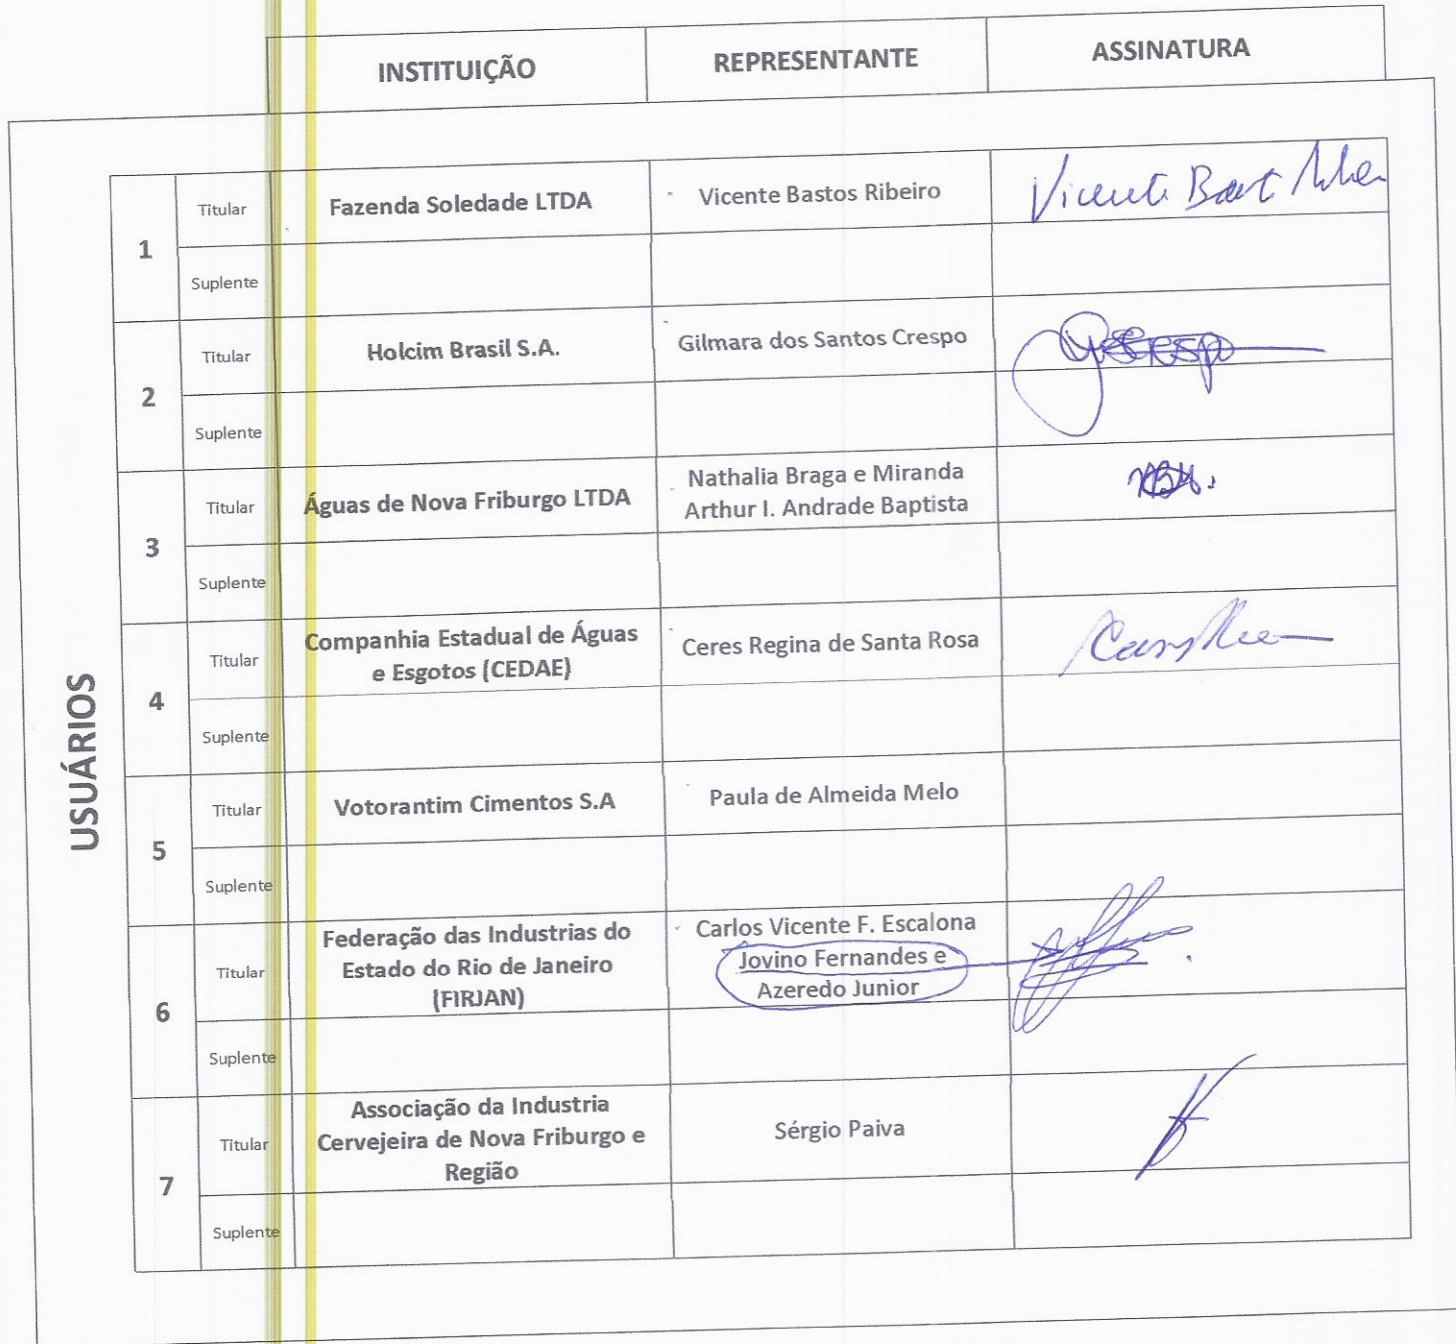 INSTITUIÇÃO REPRESENTANTE ASSINATURA
USUÁRIOS
1
Titular Fazenda Soledade LTDA Vicente Bastos Ribeiro Vicente
Suplente
2
Titular Holcim Brasil S.A. Gilmara dos Santos Crespo GCrespo
Suplente
3
Titular Águas de Nova Friburgo LTDA Nathalia Braga e Miranda
Arthur I. Andrade Baptista
Suplente
4
Titular Companhia Estadual de Águas
e Esgotos (CEDAE) Ceres Regina de Santa Rosa
Suplente
5
Titular Votorantim Cimentos S.A Paula de Almeida Melo
Suplente
6
Titular Federação das Industrias do
Estado do Rio de Janeiro
(FIRJAN) Carlos Vicente F. Escalona
Jovino Fernandes e
Azeredo Junior
Suplente
7
Titular Associação da Industria
Cervejeira de Nova Friburgo e
Região Sérgio Paiva
Suplente